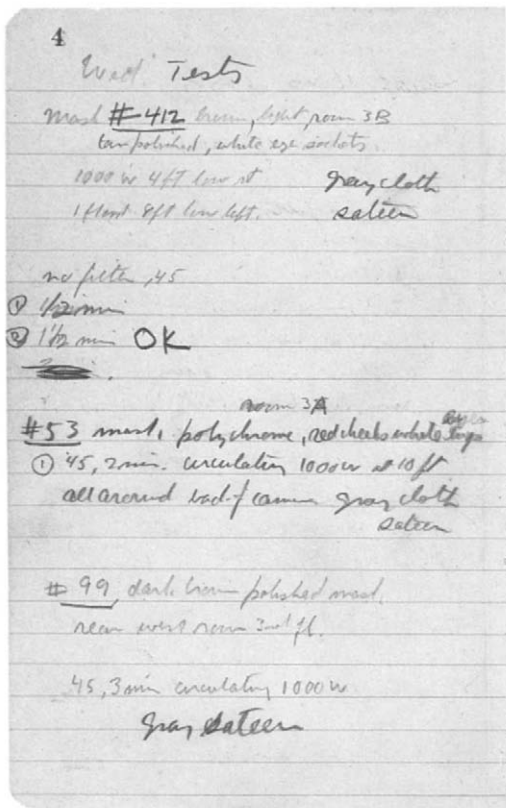 4
Wed. Tests
mask #412 brown, light, room 3B
tan polished, white eye sockets.
1000 w 4ft low rt gray cloth
1 flood 8ft low left. sateen
no filter, 45
① 1/2 min
② 1 1/2 min OK
room 3A
#53 mask, polychrome, red cheeks white
① 45, 2 min. circulating 1000 w at 10 ft
all around back of camera gray cloth
sateen
#99, dark brown polished mask,
rear west room 3rd fl.
45, 3 min circulating 1000 w
gray sateen